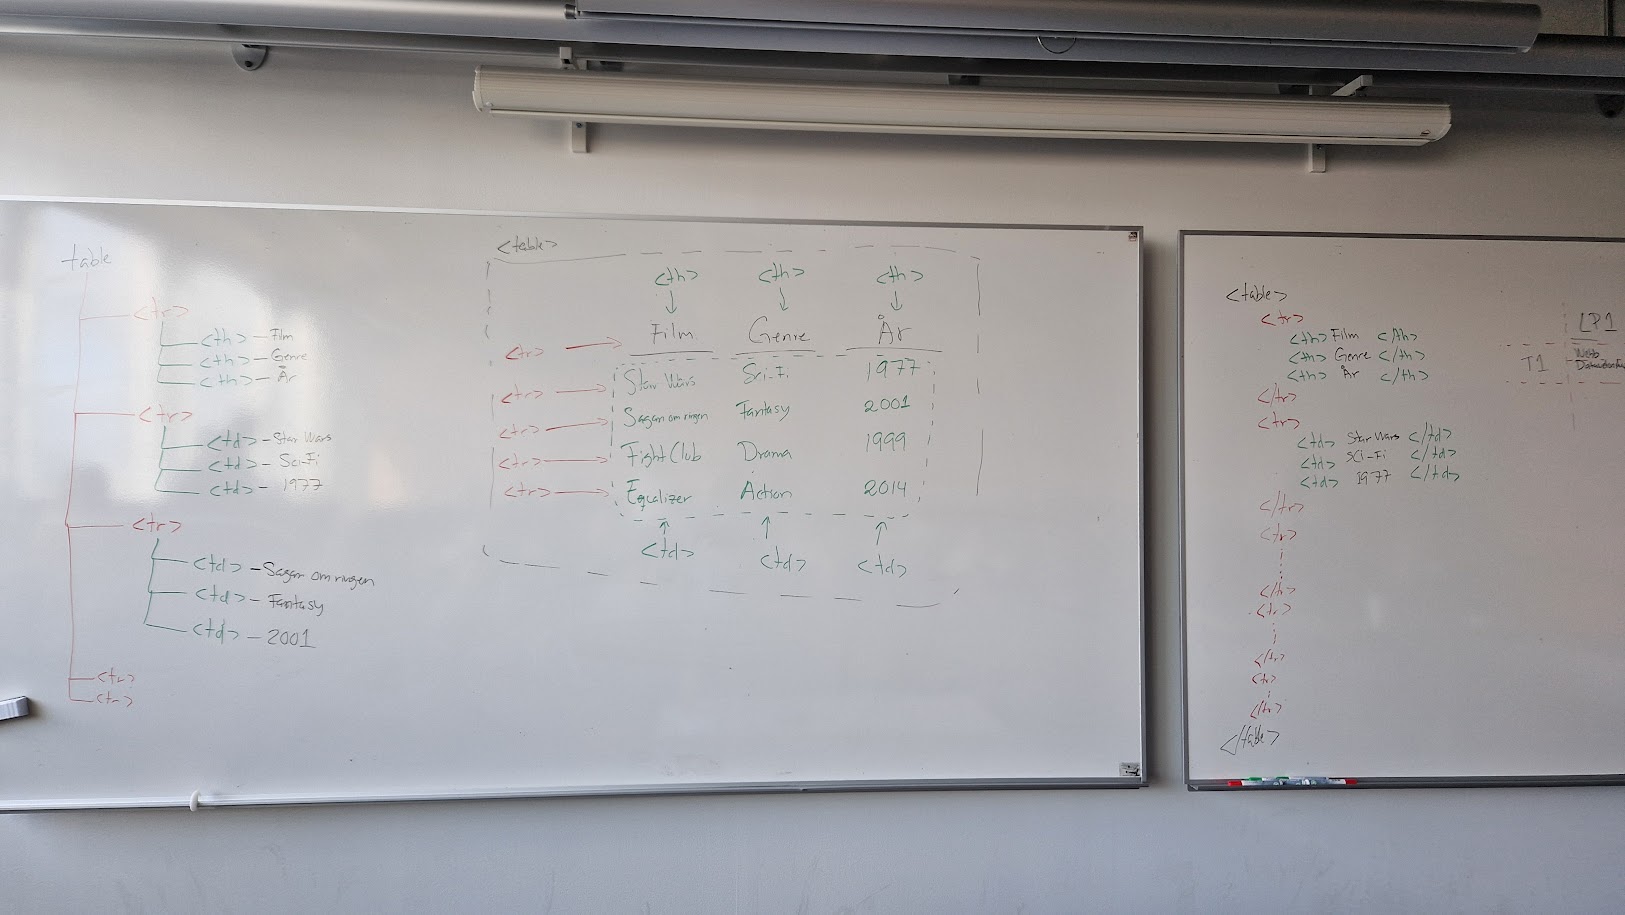 table
<tr>
<th> - Film
<th> - Genre
<th> - År
<tr>
<td> - Star Wars
<td> - Sci-Fi
<td> - 1977
<tr>
<td> - Sagan om ringen
<td> - Fantasy
<td> - 2001
<tr>
<tr>
<table>
<th> <th> <th>
<tr> Film Genre År
<tr> Star Wars Sci-Fi 1977
<tr> Sagan om ringen Fantasy 2001
<tr> Fight Club Drama 1999
<tr> Equalizer Action 2014
<td> <td> <td>
<table>
<tr>
<th> Film </th>
<th> Genre </th>
<th> År </th>
</tr>
<tr>
<td> Star Wars </td>
<td> SCi-Fi </td>
<td> 1977 </td>
</tr>
<tr>
</tr>
<tr>
</tr>
<tr>
</tr>
</table>
LP1
T1 Webb